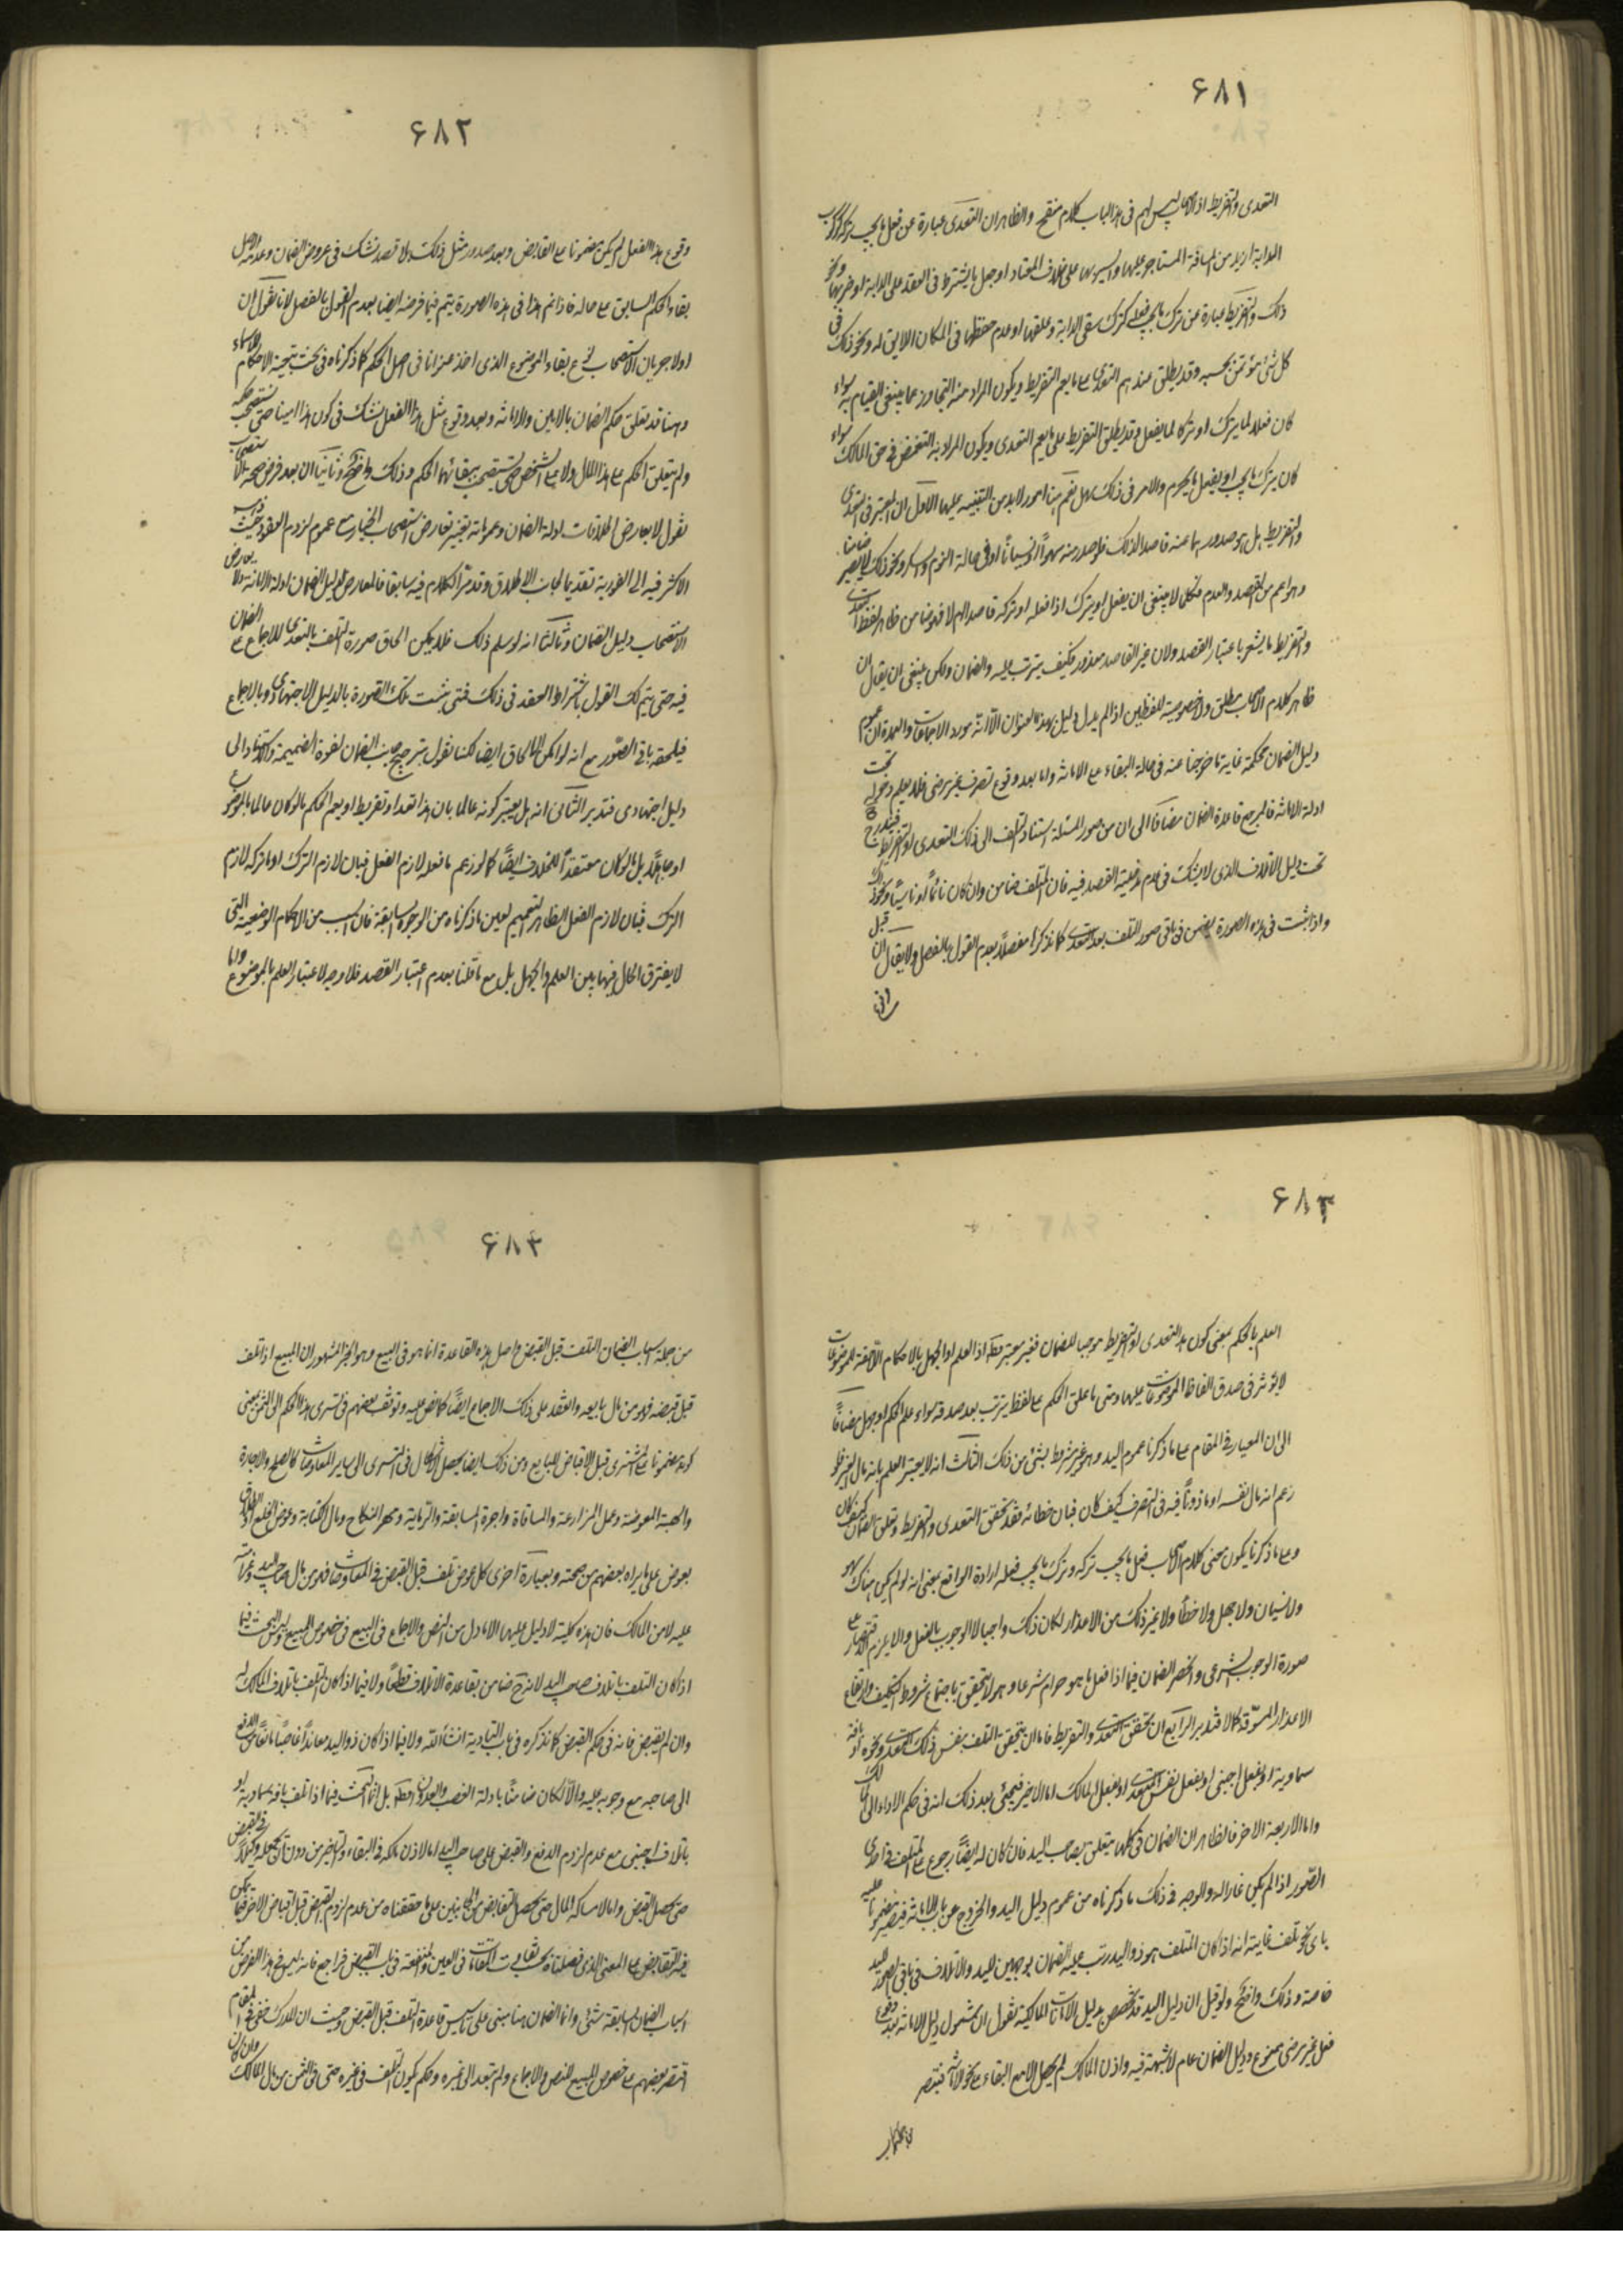 ۶۸۱
التعدی والتفریط اذ الاصحاب لیس لهم فی هذا الباب کلام منقح والظاهر ان التعدی عبارة عن فعل ما یجب ترکه کرکوب
الدابة ازید من المسافة المستاجر علیها والسیر بها علی خلاف المعتاد او حمل ما یشترط فی العقد علی الدابة او ضربها ونحو
ذلک والتفریط عبارة عن ترک ما یجب فعله کترک سقی الدابة وعلفها او عدم حفظها فی المکان اللایق له ونحو ذلک فی
کل شئ مؤتمن بحسبه وقد یطلق عندهم التعدی علی ما یعم التفریط ویکون المراد منه التجاوز عما ینبغی القیام به سواء
کان فعلا لما یترک او ترکا لما یفعل وقد یطلق التفریط علی ما یعم التعدی ویکون المراد به التنقص فی حق المالک سواء
کان بترک ما یجب او بفعل ما یحرم والامر فی ذلک سهل نعم هنا امور لابد من التنبیه علیها الاول ان المعتبر فی التعدی
والتفریط هل هو صدورهما عنه قاصدا لذلک فلو صدر منه سهوا او نسیانا او فی حالة النوم والسکر ونحو ذلک لا یصیر ضامنا
وهو اعم من القصد والعدم فکلما لا ینبغی ان یفعل او یترک اذا فعله او ترکه قاصدا ام لا فهو ضامن ظاهر لفظ التعدی
والتفریط ما یشعر باعتبار القصد ولان غیر القاصد معذور فکیف یترتب علیه والضمان ولکن ینبغی ان یقال ان
ظاهر کلام الاصحاب مطلق ولا خصوصیة للفظین اذا لم یدل دلیل بهذا العنوان الا انه مورد الاجماعات والعمدة ان عموم
دلیل الضمان محکمة غایة ما خرجنا عنه فی حالة البقاء مع الامانة واما بعد وقوع تصرف غیر مرضی فلا یعلم دخوله تحت
ادلة الامانة فالمرجع قاعدة الضمان مضافا الی ان من صور المسئلة استناد التلف الی ذلک التعدی او التفریط فیندرج
تحت دلیل الاتلاف الذی لا یشک فی عدم مدخلیة القصد فیه فان المتلف ضامن وان کان نائما او ناسیا ونحو ذلک
واذا ثبت فی هذه الصورة یضمن فی باقی صور التلف بعد التعدی کما نذکره مفصلا بعدم القول بالفصل ولا یقال ان قبل
۶۸۲
وقوع هذا الفعل لم یکن مضمونا علی القابض وبعد صدور مثل ذلک بلا قصد نشک فی عروض الضمان وعدمه والاصل
بقاء الحکم السابق علی حاله فاذا تم هذا فی هذه الصورة یتم فیما فرضه ایضا بعدم القول بالفصل لانا نقول ان
اولا جریان الاستصحاب فرع بقاء الموضوع الذی اخذ عنوانا فی اصل الحکم کما ذکرناه فی بحث تبعیة الاحکام للاسماء
وهنا قد تعلق حکم الضمان بالامین والامانة وبعد وقوع مثل هذا الفعل نشک فی کون هذا امینا حتی نستصحب حکمه
ولم یتعلق الحکم علی هذا المال ولا علی الشخص حتی یستصحب ببقائهما الحکم وذلک واضح وثانیا ان بعد فرض صحة الاستصحاب
نقول لا یعارض اطلاقات ادلة الضمان وعموماته بتغییر تعارض استصحاب الخیار مع عموم لزوم العقود حیث ذهب
الاکثر فیه الی الفوریة تقدیما لجانب الاطلاق وقد مر الکلام فیه سابقا فالمعارض لدلیل الضمان ادلة الامانة ولا یعارض
الاستصحاب دلیل الضمان وثالثا انه لو سلم ذلک فلا یمکن الحاق صورة التلف بالتعدی للاجماع علی الضمان
فیه حتی یتم لک القول باشتراط القصد فی ذلک فمتی یثبت تلک الصورة بالدلیل الاجتهادی وبالاجماع
فیلحقه باقی الصور مع انه لو امکن الالحاق ایضا لکنا نقول بترجیح جانب الضمان لقوة الضمیمة واستنادا الی
دلیل اجتهادی فتدبر الثانی انه هل یعتبر کونه عالما بان هذا تعد او تفریط او یعم الحکم ما لو کان عالما بالموضوع
او جاهلا بل ما لو کان معتقدا للخلاف ایضا کما لو زعم ما فعله لازم الفعل فبان لازم الترک او ما ترکه لازم
الترک فبان لازم الفعل الظاهر التعمیم لعین ما ذکرناه من الوجوه السابقة فان السبب من الاحکام الوضعیة التی
لا یفترق الحال فیها بین العلم والجهل بل مع ما قلنا بعدم اعتبار القصد فلا وجه لاعتبار العلم بالموضوع واما
۶۸۳
العلم بالحکم بمعنی کون هذا التعدی او التفریط موجبا للضمان فغیر معتبر قطعا اذ العلم او الجهل بالاحکام اللاحقة للموضوعات
لا یؤثر فی صدق الفاظ الموضوعات علیها ومتی ما علق الحکم علی لفظ یترتب بعد صدقه سواء علم الحکم او جهل مضافا
الی ان المعیار فی المقام علی ما ذکرنا عموم الید وهو غیر مشروط بشئ من ذلک الثالث انه لا یعتبر العلم بانه مال الغیر فلو
زعم انه مال نفسه او ماذونا فیه فی التصرف کیف کان فبان خطائه فقد تحقق التعدی والتفریط وتعلق الضمان کیف کان
وعلی ما ذکرنا یکون معنی کلام الاصحاب فعل ما یجب ترکه وترک ما یجب فعله ارادة الواقع بمعنی انه لو لم یکن هناک سهو
ولا نسیان ولا جهل ولا خطأ ولا غیر ذلک من الاعذار لکان ذلک واجبا لا الوجوب بالفعل والا یلزم الاقتصار علی
صورة الوجوب الشرعی وانحصر الضمان فیما اذا فعل ما هو حرام شرعا وهو لا یتحقق باجتماع شروط التکلیف وارتفاع
الاعذار المسوغة کما لا فتدبر الرابع ان تحقق التعدی والتفریط فاما ان یتحقق التلف بنفس ذلک التعدی ونحوه او بآفة
سماویة او بفعل اجنبی او بفعل نفس المتعدی او بفعل المالک اما الاخیر فیجئ بعد ذلک انه فی حکم الاداء الی المالک
واما الاربعة الاخر فالظاهر ان الضمان فی کلها یتعلق بصاحب الید فان کان له ایضا رجوع علی المتلف فی احدی
الصور اذا لم یکن غارا له والوجه فی ذلک ما ذکرناه من عموم دلیل الید والخروج عن باب الامانة فیصیر مضمونا علیه
بای نحو تلف غایته انه اذا کان المتلف هو ذو الید رتب علیه الضمان بوجهین الید والاتلاف وفی باقی الصور للید
خاصة وذلک واضح ولو قیل ان دلیل الید قد خصص بدلیل الامانات المالکیة نقول ان شمول دلیل الامانة لبعد وقوع
فعل غیر مرضی ممنوع ودلیل الضمان عام لا شبهة فیه واذن المالک لم یحصل الا مع البقاء علی نحو الامانة فیقتصر
۶۸۴
من جملة اسباب الضمان التلف قبل القبض واصل هذه القاعدة انما هو فی البیع وهو الخبر المشهور ان المبیع اذا تلف
قبل قبضه فهو من مال بایعه وانعقد علی ذلک الاجماع ایضا کما نص علیه وتوقف بعضهم فی تسری هذا الحکم الی الثمن بمعنی
کونه مضمونا علی المشتری قبل الاقباض للبایع ومن ذلک ایضا یحصل الاشکال فی التسری الی سایر المعاوضات کالصلح والاجارة
والهبة المعوضة وعمل المزارعة والمساقاة واجرة المسابقة والرمایة ومهر النکاح ومال الکتابة وعوض الخلع او الطلاق
بعوض علی ما یراه بعضهم من صحته وبعبارة اخری کل عوض تلف قبل القبض فی المعاوضات فهو من مال صاحب الید وغرامته
علیه لا من المالک فان هذه کلیة لا دلیل علیها الا ما دل من النص والاجماع فی البیع فی خصوص المبیع ولیس البحث فیما
اذا کان التلف باتلاف صاحب الید لانه ح ضامن بقاعدة الاتلاف قطعا ولا فیما اذا کان التلف باتلاف المالک له
وان لم یقبض فانه فی حکم القبض کما نذکره فی باب التادیة انشاء الله ولا فیما اذا کان ذو الید معاندا غاصبا مانعا من الدفع
الی صاحبه مع وجوبه علیه والا لکان ضامنا بادلة الغصب والعدوان قطعا بل انما البحث فیما اذا تلف بآفة سماویة او
باتلاف اجنبی مع عدم لزوم الدفع والقبض علی صاحب الید اما للاذن مالکه فی البقاء والتاخیر من دون ان یجعله وکیلا فی القبض
حتی یحصل القبض واما لامساکه المال حتی یحصل التقابض من الجانبین علی ما حققناه من عدم لزوم القبض قبل اقباض الاخر فیما یمکن
فیه التقابض علی المعنی الذی فصلناه بحسب تفاوت المقامات فی العین والمنفعة فی باب القبض فراجع فانه لیس فی هذا الفرض من
اسباب الضمان السابقة شئ وانما الضمان هنا مبنی علی تاسیس قاعدة التلف قبل القبض وحیث ان المدرک خفی فی المقام
اقتصر بعضهم علی خصوص المبیع للنص والاجماع ولم یتعد الی غیره وحکم بکون التلف فی غیره حتی فی الثمن من مال المالک وان کان